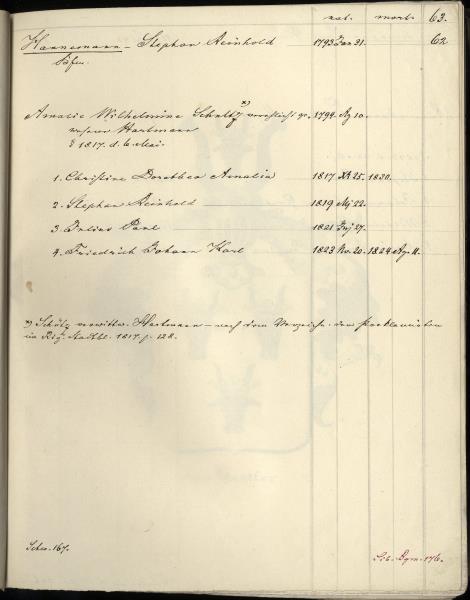 nat. mort. 63.
Hannemann Stephan Reinhold 1793 Jan 31. 62
Amalie Wilhelmine Schultz x) verehlicht gew. 1794. Ag 10.
Hartmann
1817. d. 6 Mai.
1. Christine Dorothea Amalia 1817 Xb 25. 1830.
2. Stephan Reinhold 1819 Mj 22.
3 Julius Paul 1821 Juj 27.
4. Friedrich Johann Karl 1823 Nov. 20. 1824 Ap. 11.
x) Schulz verwittw. Hartmann – nach dem Verzeichn. der Proklamirten
im Rig. Stadtbl. 1817. p. 128.
167.
176.